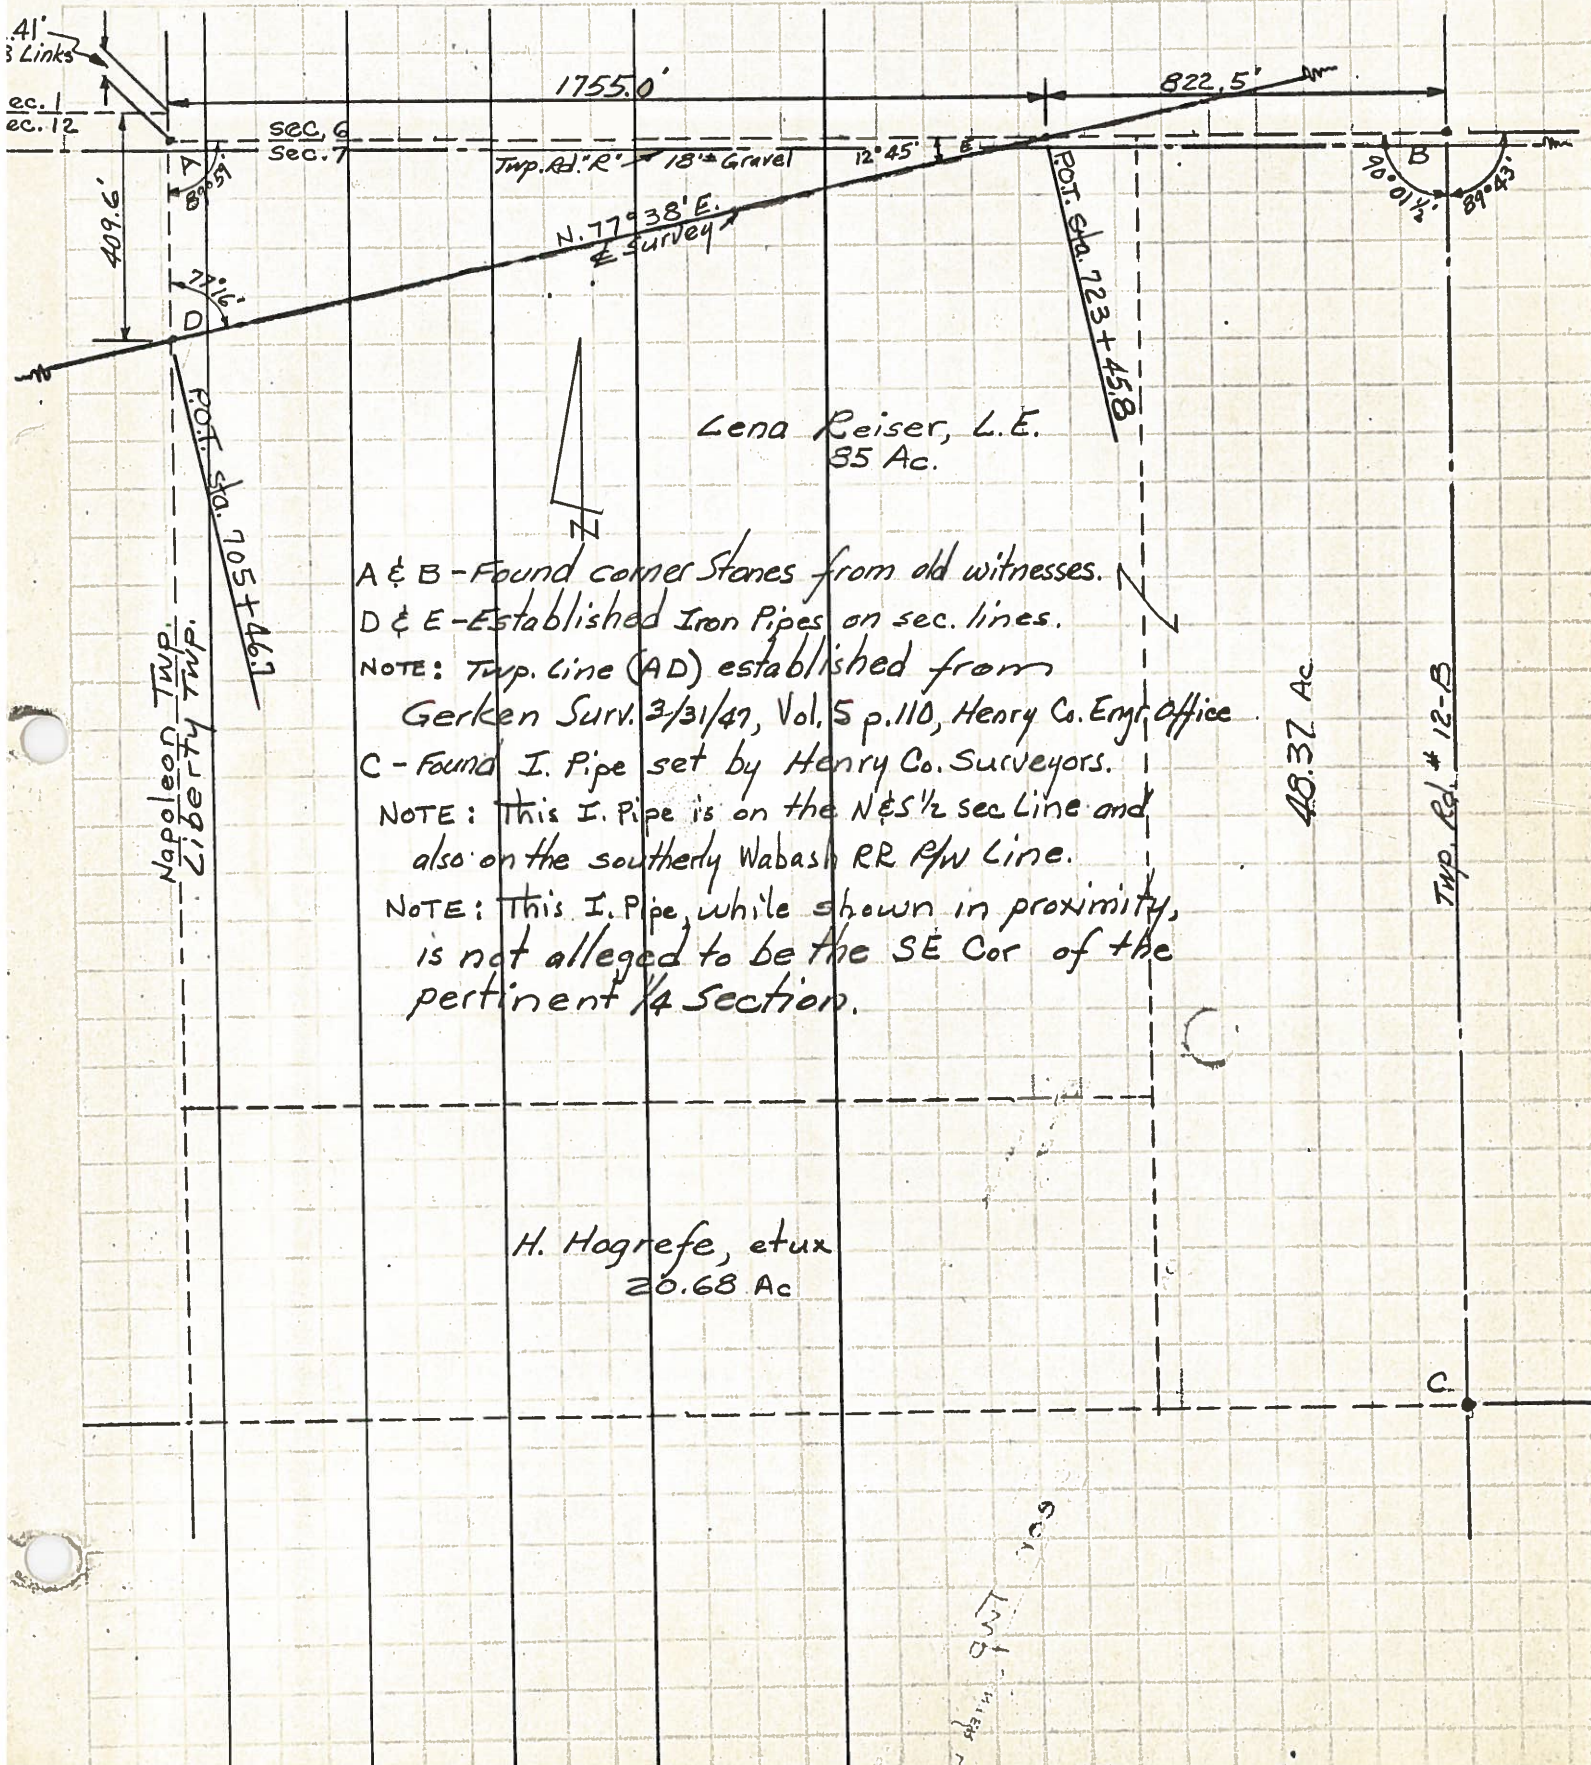 .41'
3 Links
1755.0'
822.5'
ec. 1
ec. 12
sec. 6
Sec. 7
A
89°59'
Twp. Rd. "R" 18'± Gravel
12°45'
E
B
90°01½'
89°43'
409.6'
N. 77°38' E.
℄ Survey
77°16'
D
P.O.T. Sta. 723+45.8
P.O.T. Sta. 705+46.7
Lena Reiser, L.E.
85 Ac.
N
A & B - Found corner Stones from old witnesses.
D & E - Established Iron Pipes on sec. lines.
NOTE: Twp. Line (AD) established from
Gerken Surv. 3/31/47, Vol. 5 p. 110, Henry Co. Engr. Office
C - Found I. Pipe set by Henry Co. Surveyors.
NOTE: This I. Pipe is on the N&S ½ sec Line and
also on the southerly Wabash RR R/W Line.
NOTE: This I. Pipe, while shown in proximity,
is not alleged to be the SE Cor of the
pertinent ¼ Section.
Napoleon Twp.
Liberty Twp.
48.37 Ac
Twp. Rd. # 12-B
H. Hogrefe, etux
20.68 Ac
C